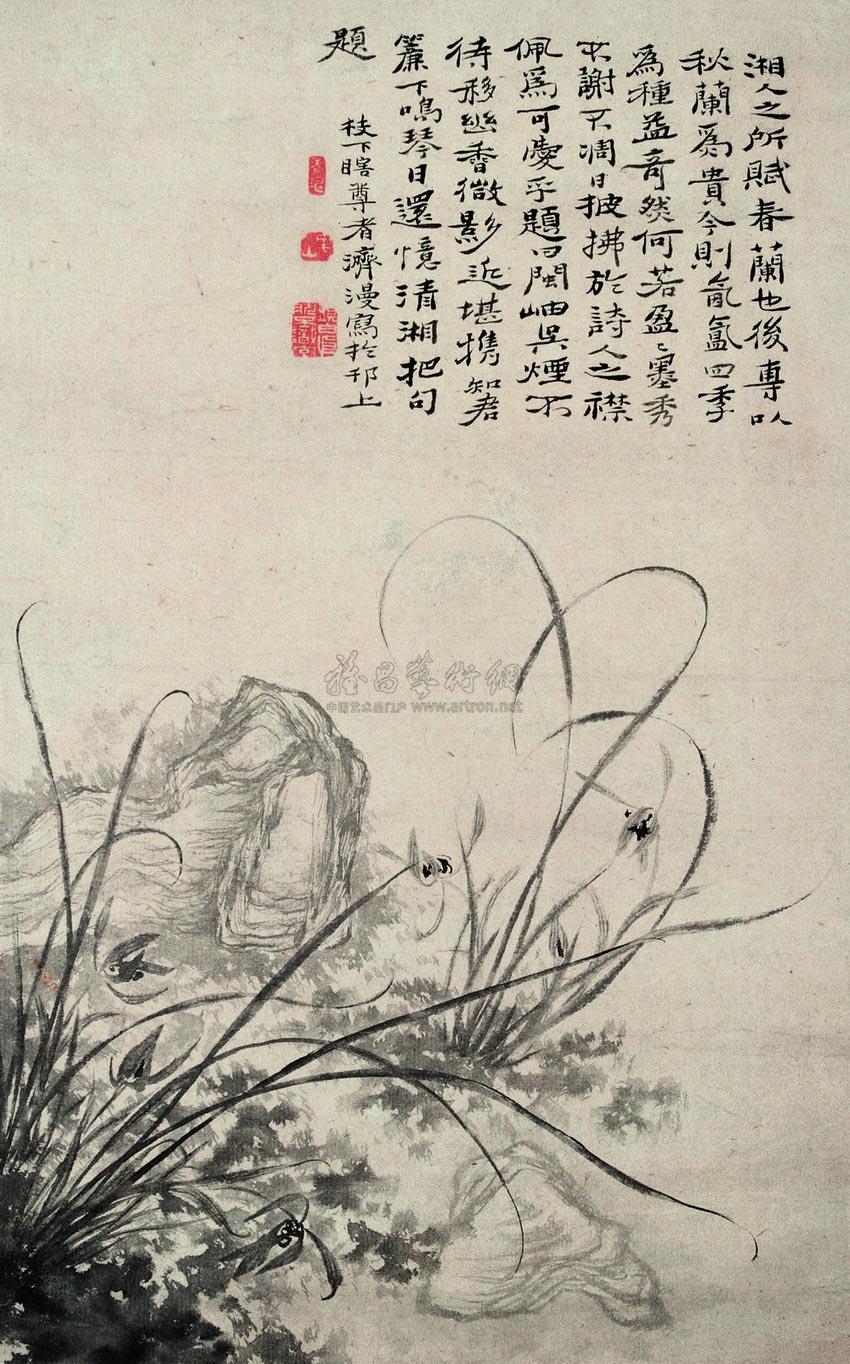 湘人之所賦春蘭也後專以
秋蘭為貴今則氤氳四季
為種益奇然何若盈〻墨秀
不謝不凋日披拂於詩人之襟
佩為可慶乎題曰閩岫吳煙不
待移幽香微影近堪攜知君
簾下鳴琴日還憶清湘把句
題
枝下瞎尊者濟漫寫於邗上
雅昌藝術網
中国艺术品门户 www.artron.net